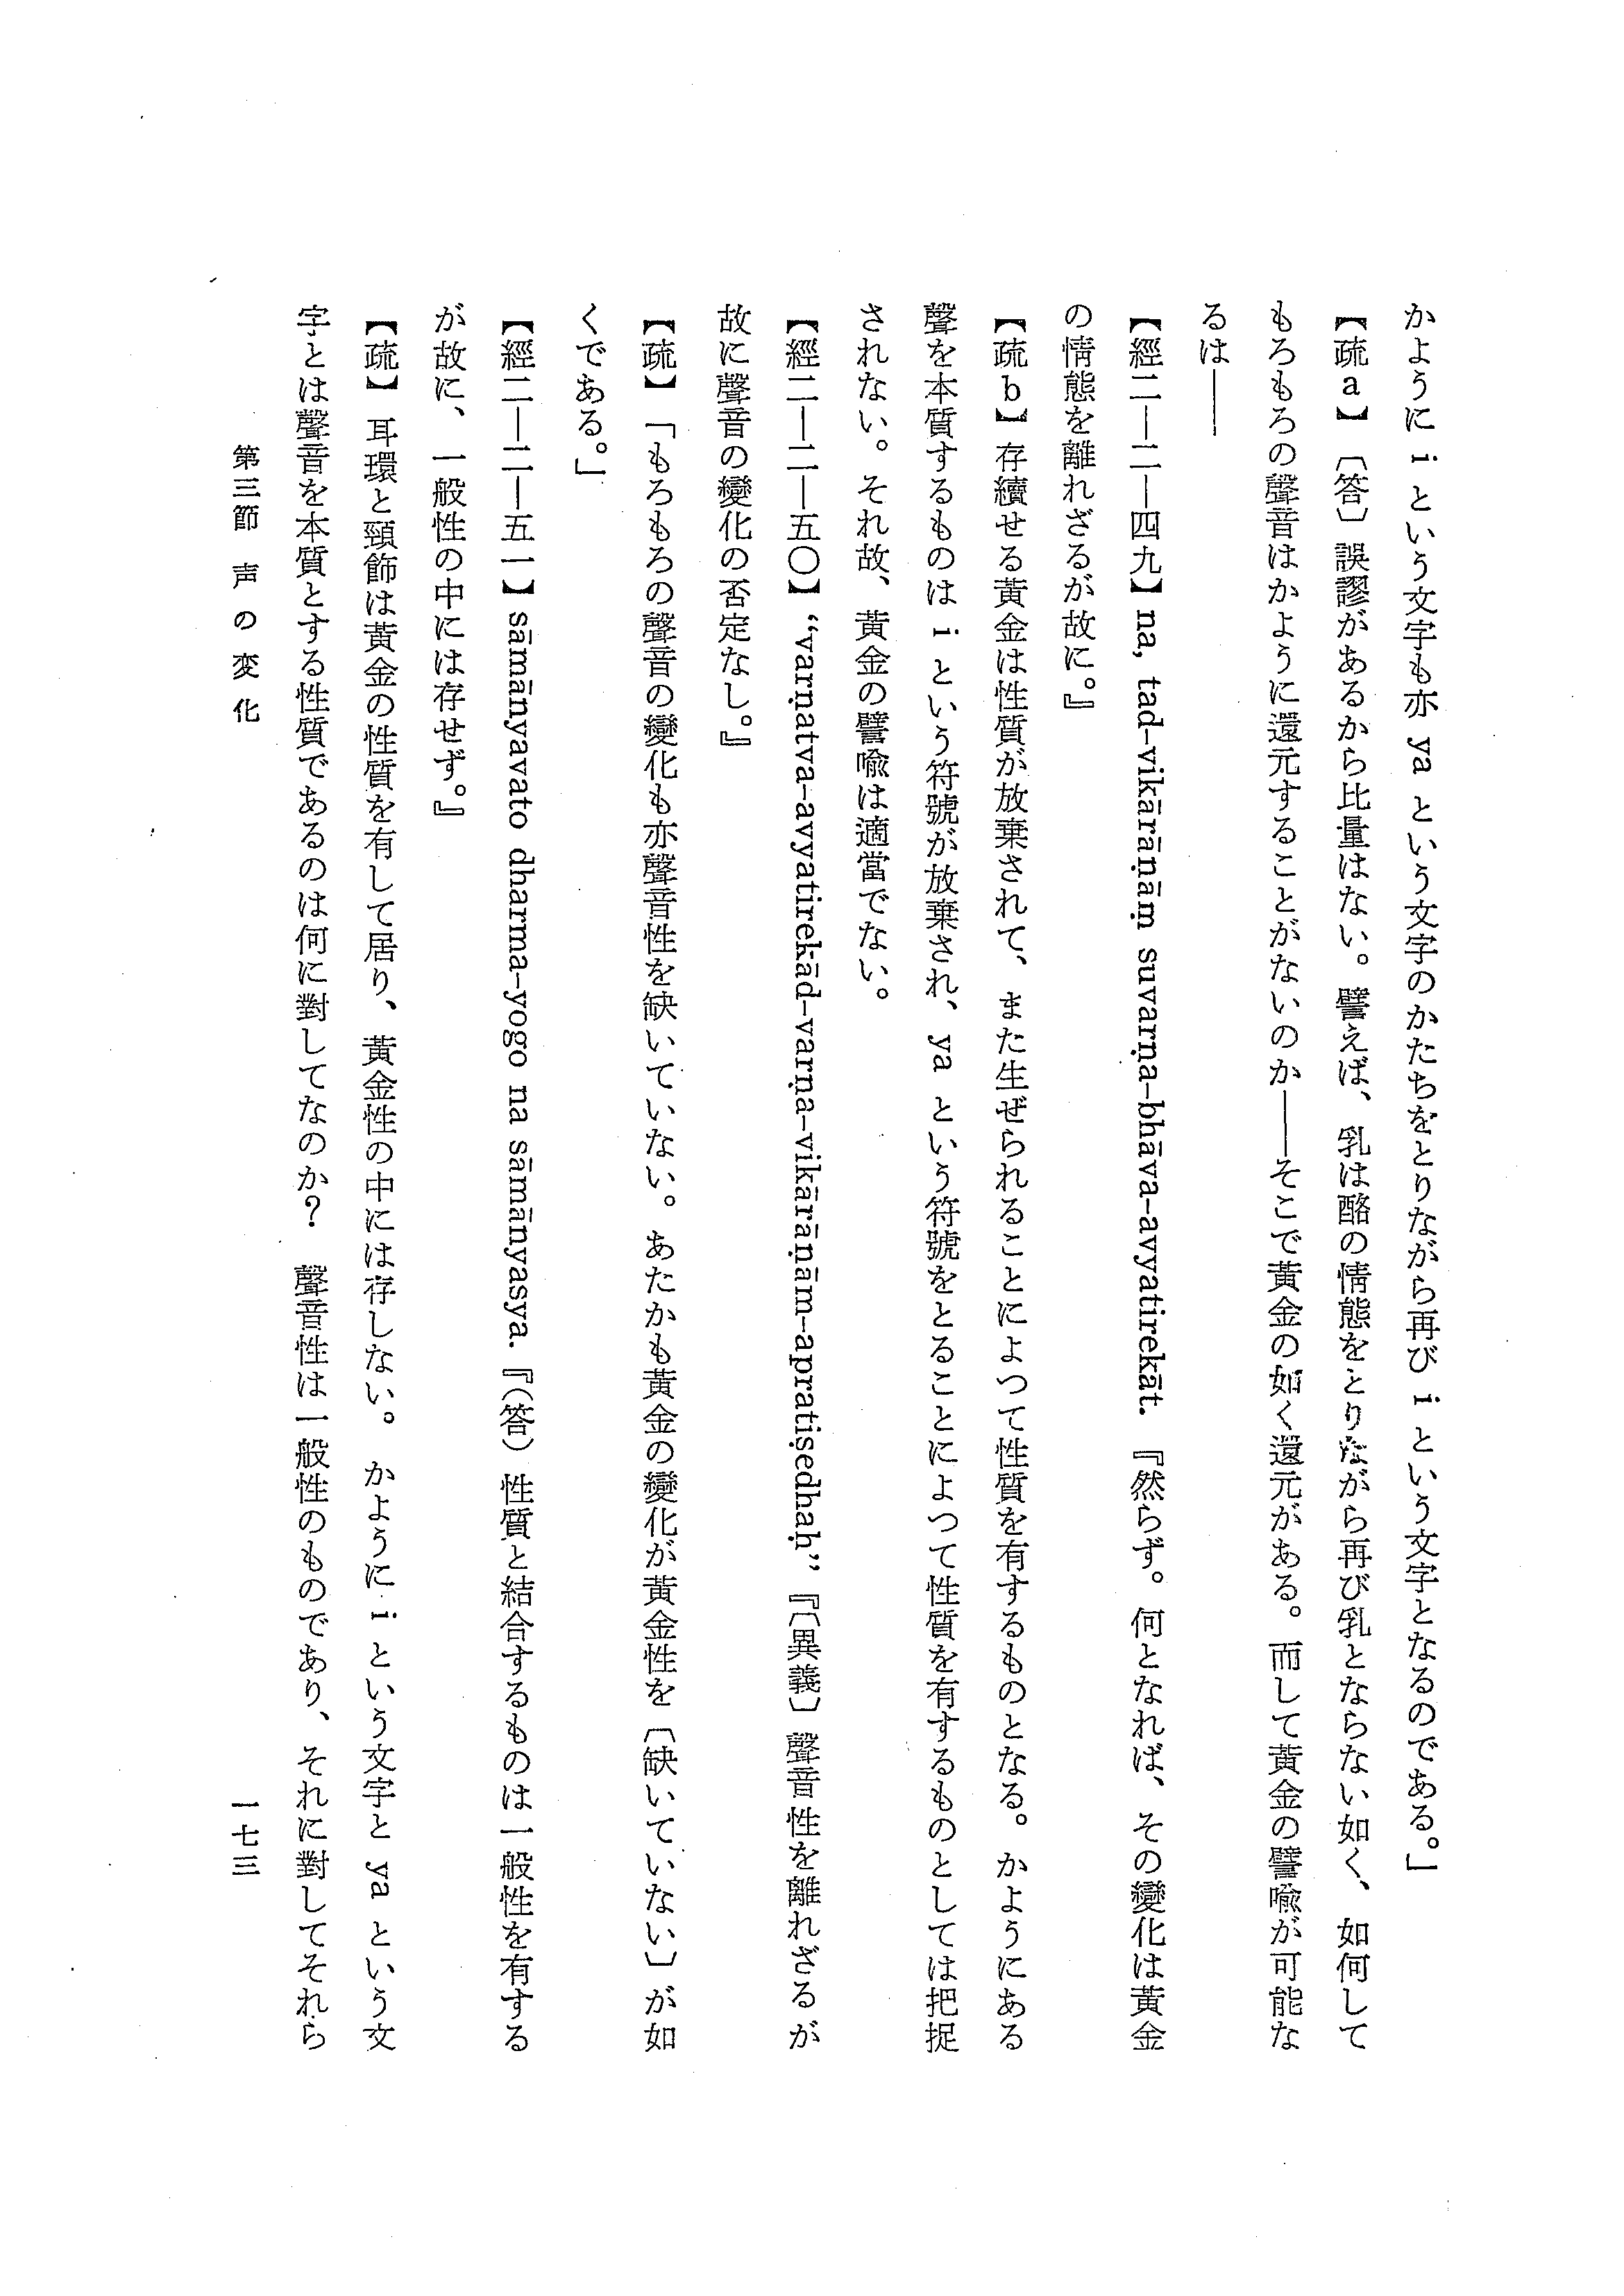 かように i という文字も亦 ya という文字のかたちをとりながら再び i という文字となるのである。」
【疏a】〔答〕誤謬があるから比量はない。譬えば、乳は酪の情態をとりながら再び乳とならない如く、如何して
もろもろの聲音はかように還元することがないのか――そこで黃金の如く還元がある。而して黃金の譬喩が可能な
るは――
【經二―二―四九】na, tad-vikārāṇāṃ suvarṇa-bhāva-avyatirekāt. 『然らず。何となれば、その變化は黃金
の情態を離れざるが故に。』
【疏b】存續せる黃金は性質が放棄されて、また生ぜられることによつて性質を有するものとなる。かようにある
聲を本質するものは i という符號が放棄され、ya という符號をとることによつて性質を有するものとしては把捉
されない。それ故、黃金の譬喩は適當でない。
【經二―二―五〇】“varṇatva-avyatirekād-varṇa-vikārāṇām-apratiṣedhaḥ” 『〔異義〕聲音性を離れざるが
故に聲音の變化の否定なし。』
【疏】「もろもろの聲音の變化も亦聲音性を缺いていない。あたかも黃金の變化が黃金性を〔缺いていない〕が如
くである。」
【經二―二―五一】sāmānyavato dharma-yogo na sāmānyasya. 『（答）性質と結合するものは一般性を有する
が故に、一般性の中には存せず。』
【疏】 耳環と頸飾は黃金の性質を有して居り、黃金性の中には存しない。かように i という文字と ya という文
字とは聲音を本質とする性質であるのは何に對してなのか？ 聲音性は一般性のものであり、それに對してそれら
第三節 声の変化
一七三